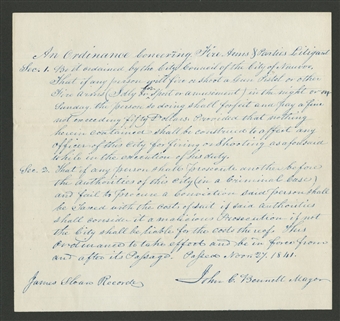 An Ordinance concerning Fire Arms & Parties Litigant
Sec. 1. Be it ordained by the City Council of the City of Nauvoo,
That if any person will fire or shoot a Gun, Pistol or other
Fire Arms in the night or on
Sunday the person so doing shall forfeit and pay a fine
not exceeding fifty Dollars. Provided that nothing
herein contained shall be construed to affect any
officer of this City for firing or Shooting as aforesaid
while in the execution of his duty.
Sec. 2. That if any person shall prosecute another before
the authorities of this City (in a Criminal Case)
and fail to procure a conviction said person shall
be taxed with the costs of suit if said authorities
shall consider it a malicious Prosecution if not
the City shall be liable for the costs thereof. This
Ordinance to take effect and be in force from
and after its Passage. Passed Novr. 27. 1841.
James Sloan Recorder John C. Bennett, Mayor